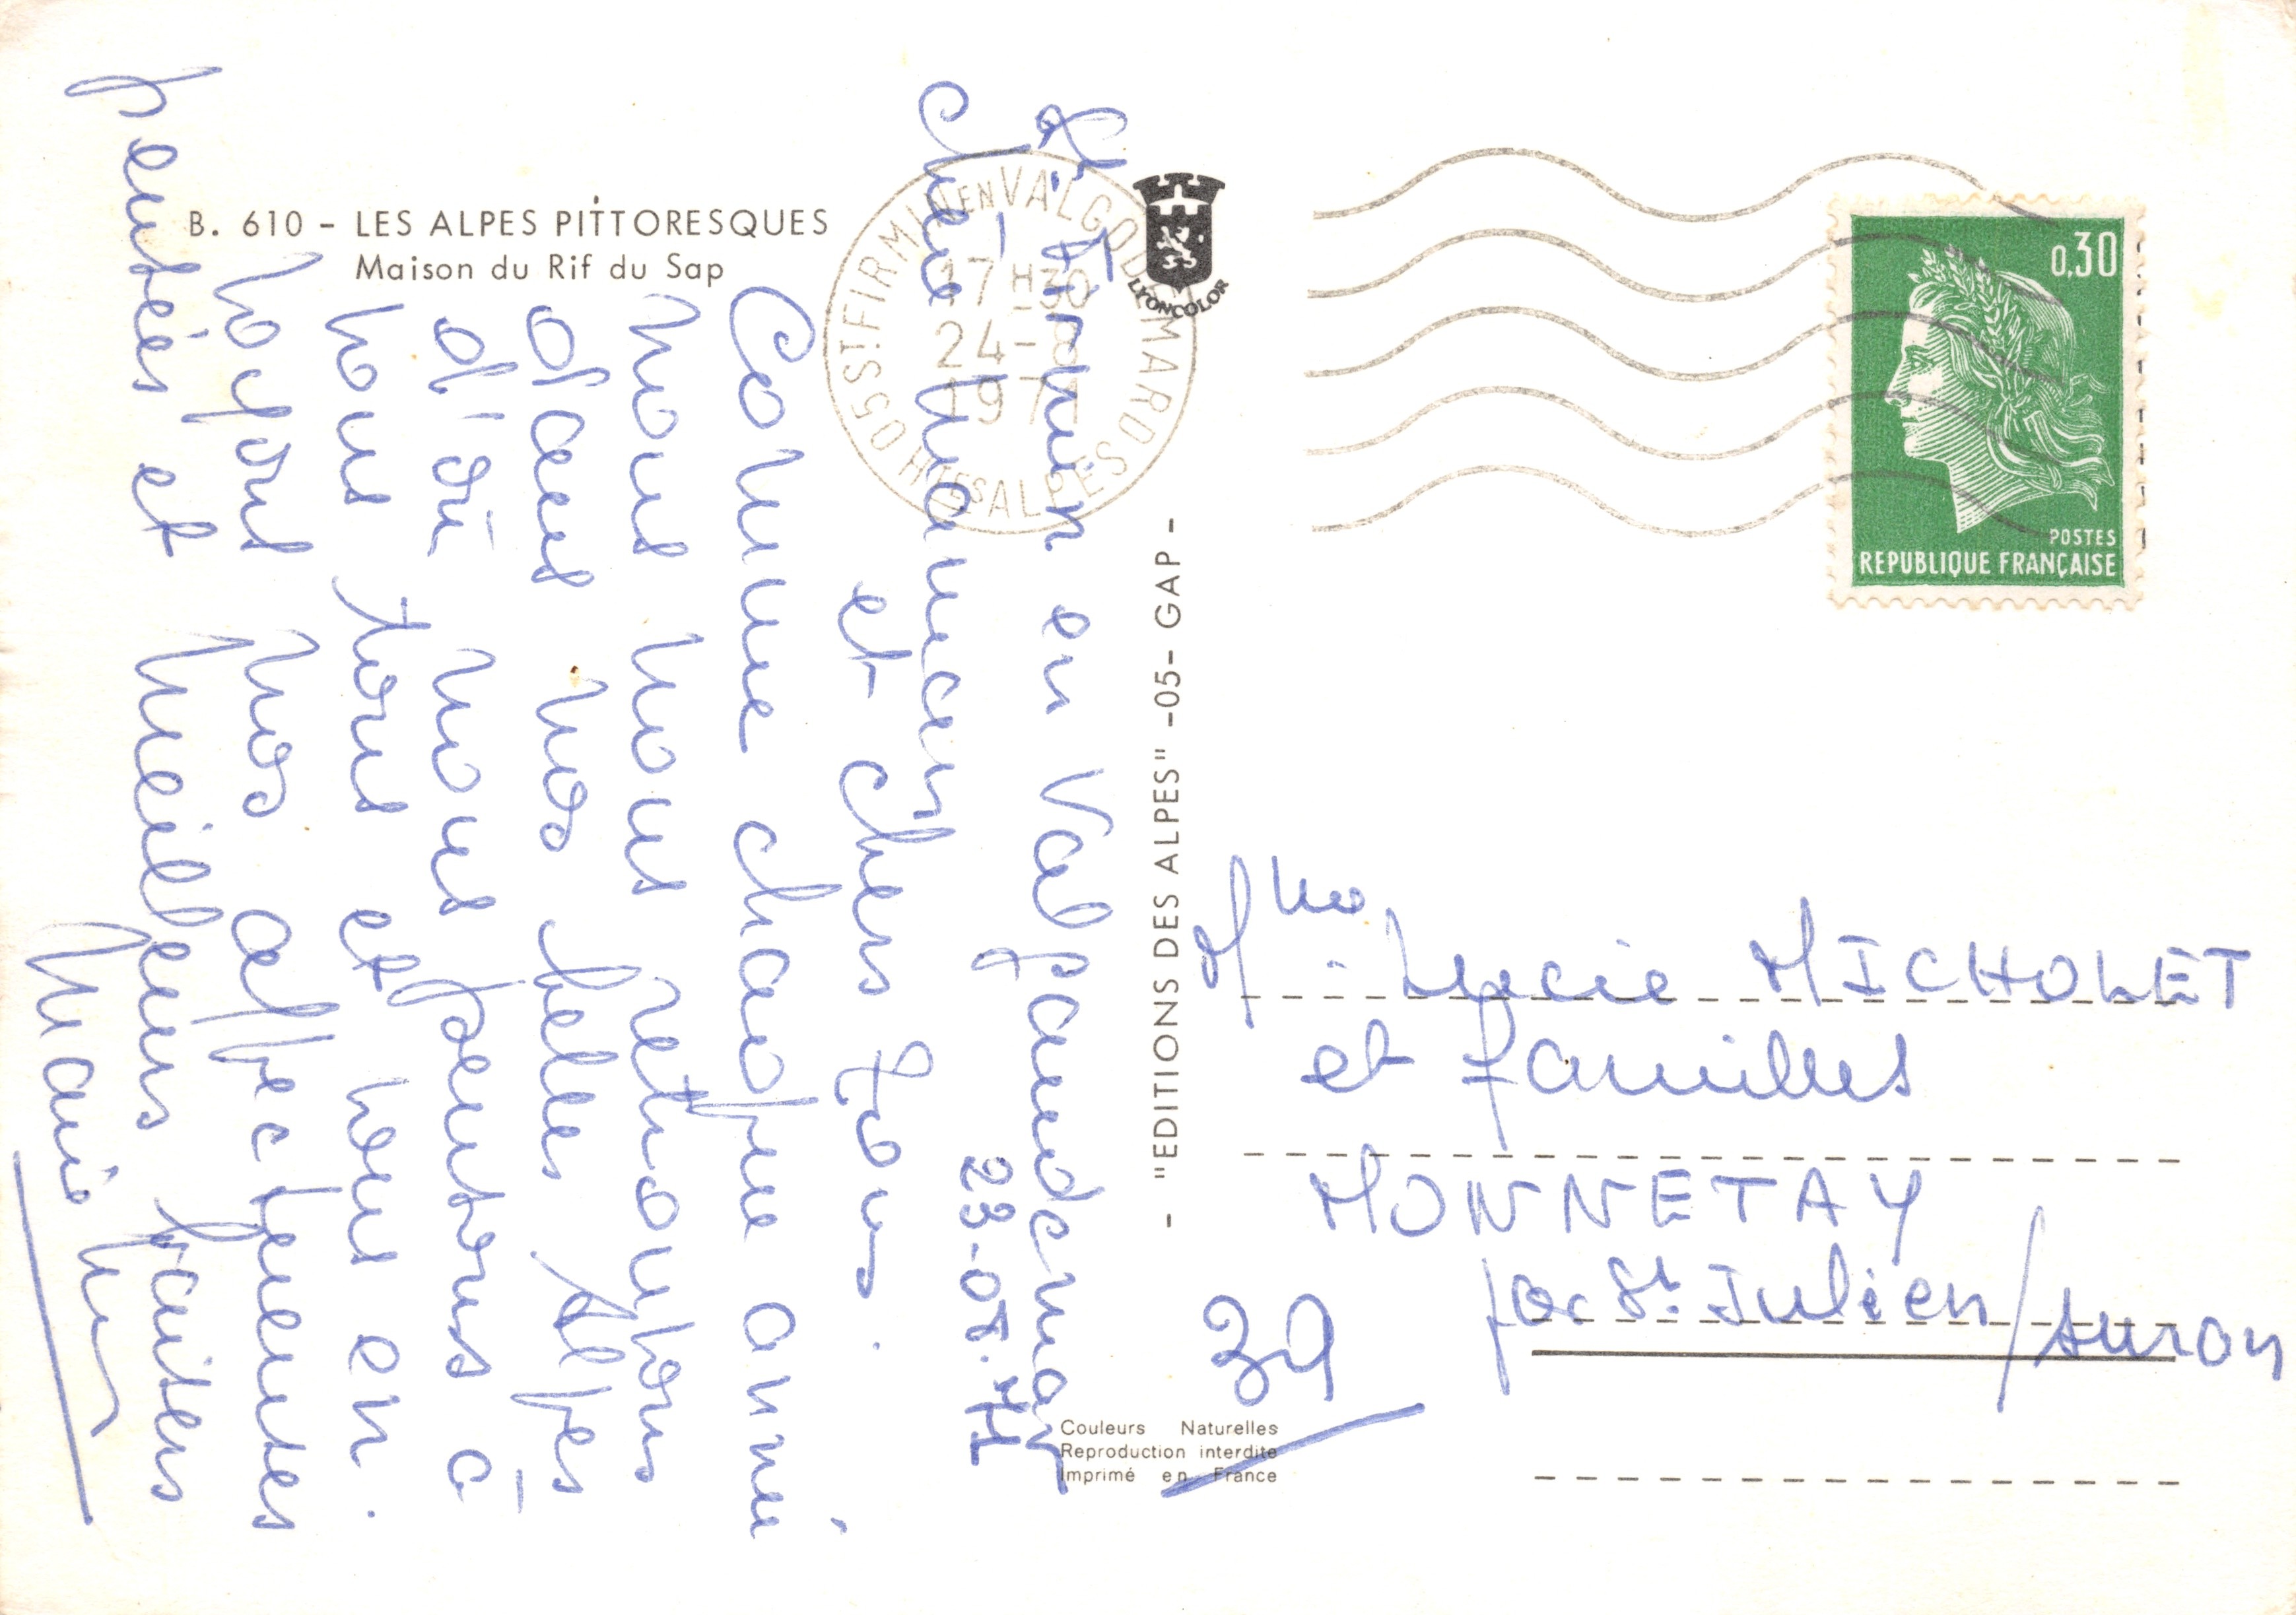 B. 610 - LES ALPES PITTORESQUES
Maison du Rif du Sap
05 ST FIRMIN EN VALGODEMARD
HTES ALPES
17 H 30
24 - 8
1971
LYONCOLOR
0,30
POSTES
REPUBLIQUE FRANÇAISE
St Firmin en Valgaudemar
23.08.71
Chère maman
et chers Tous.
Comme chaque année
nous nous retrouvons
dans nos belles Alpes
d'où nous pensons à
vous tous et vous en-
voyons nos affectueuses
pensées et meilleurs baisers
Marie
- "EDITIONS DES ALPES" -05- GAP -
Couleurs Naturelles
Reproduction interdite
Imprimé en France
Mme Lucie MICHOLET
et familles
MONNETAY
par St. Julien/Suron
39